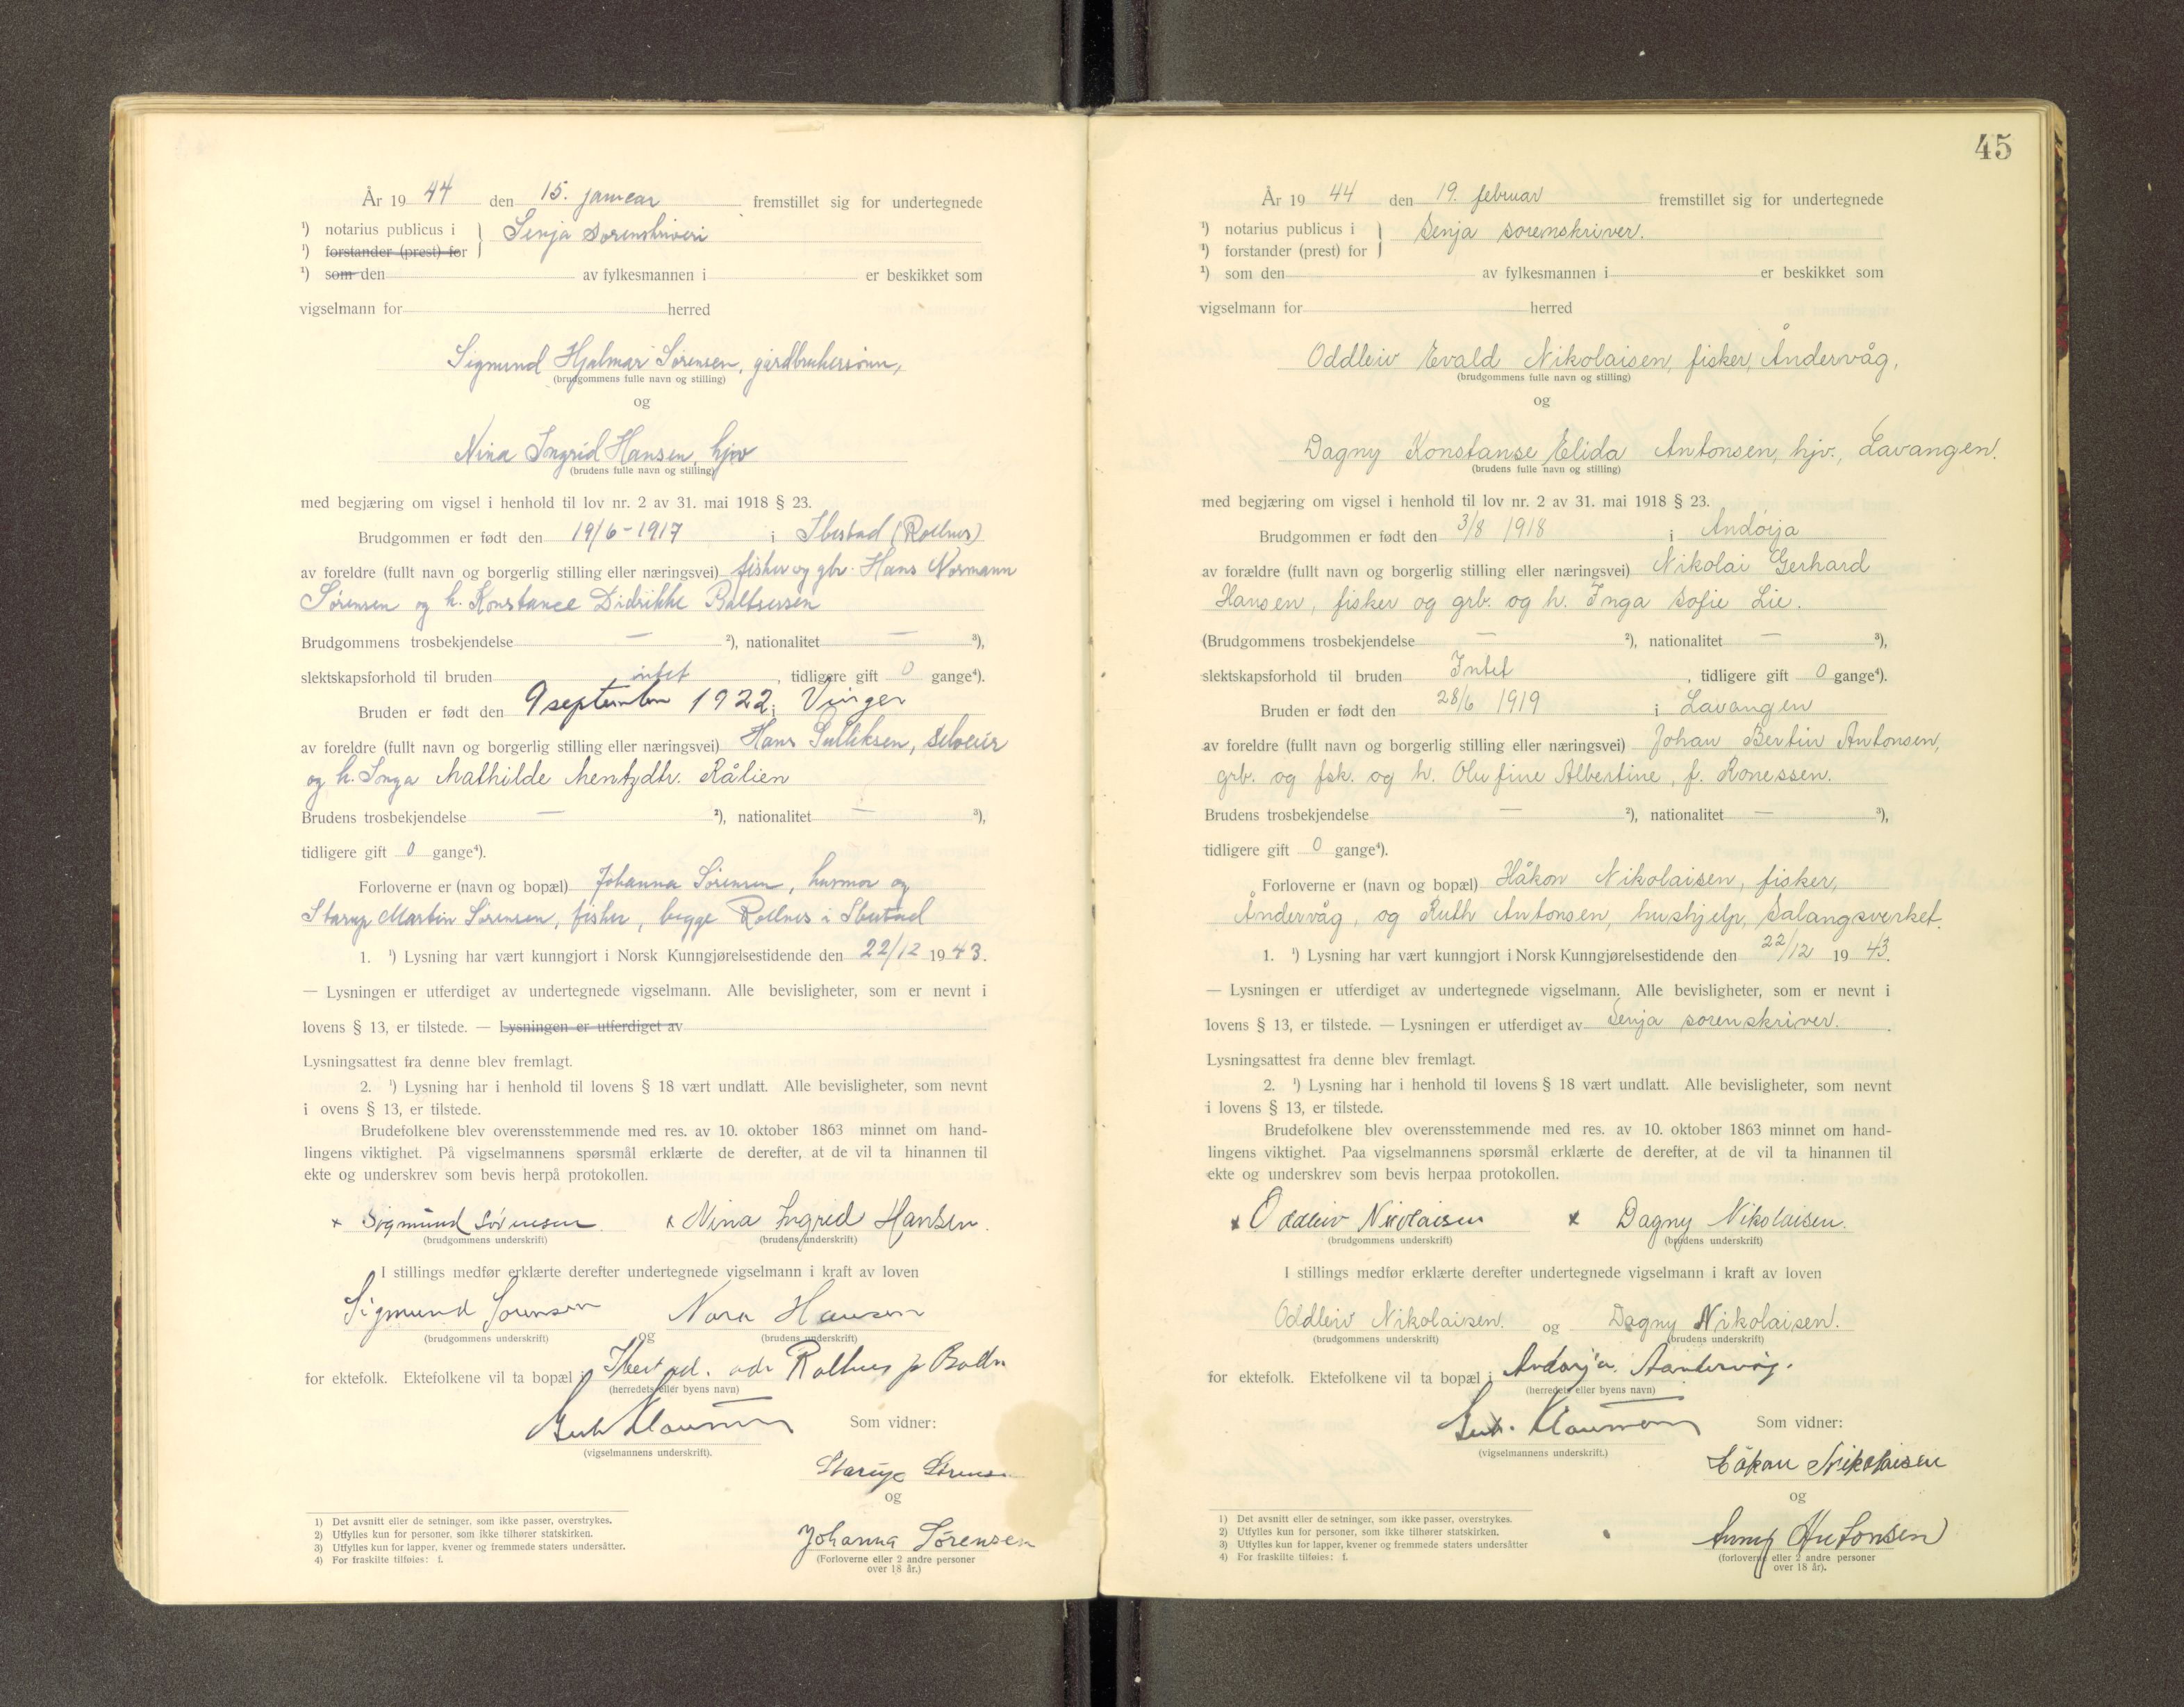 År 1944 den 15. januar fremstillet sig for undertegnede
¹) notarius publicus i } Senja sorenskriveri
¹) forstander (prest) for
¹) som den av fylkesmannen i er beskikket som
vigselmann for herred
Sigmund Hjalmar Sørensen, gårdbrukersønn,
(brudgommens fulle navn og stilling)
og
Nina Ingrid Hansen, hjv
(brudens fulle navn og stilling)
med begjæring om vigsel i henhold til lov nr. 2 av 31. mai 1918 § 23.
Brudgommen er født den 19/6-1917 i Ibestad (Rollnes)
av foreldre (fullt navn og borgerlig stilling eller næringsvei) fisker og gbr. Hans Normann
Sørensen og h. Konstance Didrikke Baltsersen
Brudgommens trosbekjendelse — ²), nationalitet — ³),
slektskapsforhold til bruden intet, tidligere gift 0 gange⁴).
Bruden er født den 9 september 1922 i Vinger
av foreldre (fullt navn og borgerlig stilling eller næringsvei) Hans Gulliksen, selveier
og h. Inga Mathilde Mentzdtr. Rålien
Brudens trosbekjendelse — ²), nationalitet — ³),
tidligere gift 0 gange⁴).
Forloverne er (navn og bopæl) Johanna Sørensen, husmor og
Starup Martin Sørensen, fisker, begge Rollnes i Ibestad
1. ¹) Lysning har vært kunngjort i Norsk Kunngjørelsestidende den 22/12 1943.
— Lysningen er utferdiget av undertegnede vigselmann. Alle bevisligheter, som er nevnt i
lovens § 13, er tilstede. — Lysningen er utferdiget av
Lysningsattest fra denne blev fremlagt.
2. ¹) Lysning har i henhold til lovens § 18 vært undlatt. Alle bevisligheter, som nevnt
i ovens § 13, er tilstede.
Brudefolkene blev overensstemmende med res. av 10. oktober 1863 minnet om hand-
lingens viktighet. På vigselmannens spørsmål erklærte de derefter, at de vil ta hinannen til
ekte og underskrev som bevis herpå protokollen.
x Sigmund Sørensen x Nina Ingrid Hansen.
(brudgommens underskrift) (brudens underskrift)
I stillings medfør erklærte derefter undertegnede vigselmann i kraft av loven
Sigmund Sørensen og Nora Hansen
(brudgommens underskrift) (brudens underskrift)
for ektefolk. Ektefolkene vil ta bopæl i Ibestad. adr Rollnes p
(herredets eller byens navn)
(vigselmannens underskrift).
Som vidner:
Starup Sørensen
og
Johanna Sørensen
(Forloverne eller 2 andre personer
over 18 år.)
1) Det avsnitt eller de setninger, som ikke passer, overstrykes.
2) Utfylles kun for personer, som ikke tilhører statskirken.
3) Utfylles kun for lapper, kvener og fremmede staters undersåtter.
4) For fraskilte tilføies: f.
45
År 1944 den 19. februar fremstillet sig for undertegnede
¹) notarius publicus i } Senja sorenskriver.
¹) forstander (prest) for
¹) som den av fylkesmannen i er beskikket som
vigselmann for herred
Oddleiv Evald Nikolaisen, fisker, Åndervåg,
(brudgommens fulle navn og stilling)
og
Dagny Konstanse Elida Antonsen, hjv., Lavangen.
(brudens fulle navn og stilling)
med begjæring om vigsel i henhold til lov nr. 2 av 31. mai 1918 § 23.
Brudgommen er født den 3/8 1918 i Andørja
av forældre (fullt navn og borgerlig stilling eller næringsvei) Nikolai Gerhard
Hansen, fisker og grb. og h. Inga Sofie Lie.
(Brudgommens trosbekjendelse — ²), nationalitet — ³),
slektskapsforhold til bruden Intet, tidligere gift 0 gange⁴).
Bruden er født den 28/6 1919 i Lavangen
av foreldre (fullt navn og borgerlig stilling eller næringsvei) Johan Bertin Antonsen,
grb. og fsk. og h. Olufine Albertine, f. Ronessen.
Brudens trosbekjendelse — ²), nationalitet — ³),
tidligere gift 0 gange⁴).
Forloverne er (navn og bopæl) Håkon Nikolaisen, fisker,
Åndervåg, og Ruth Antonsen, hushjelp, Salangsverket.
1. ¹) Lysning har vært kunngjort i Norsk Kunngjørelsestidende den 22/12 1943.
— Lysningen er utferdiget av undertegnede vigselmann. Alle bevisligheter, som er nevnt i
lovens § 13, er tilstede. — Lysningen er utferdiget av Senja sorenskriver.
Lysningsattest fra denne blev fremlagt.
2. ¹) Lysning har i henhold til lovens § 18 vært undlatt. Alle bevisligheter, som nevnt
i lovens § 13, er tilstede.
Brudefolkene blev overensstemmende med res. av 10. oktober 1863 minnet om hand-
lingens viktighet. Paa vigselmannens spørsmål erklærte de derefter, at de vil ta hinannen til
ekte og underskrev som bevis herpaa protokollen.
x Oddleiv Nicolaisen x Dagny Nikolaisen.
(brudgommens underskrift) (brudens underskrift)
I stillings medfør erklærte derefter undertegnede vigselmann i kraft av loven
Oddleiv Nikolaisen. og Dagny Nikolaisen.
(brudgommens underskrift) (brudens underskrift)
for ektefolk. Ektefolkene vil ta bopæl i Andørja. Aandervåg.
(herredets eller byens navn)
(vigselmannens underskrift.)
Som vidner:
Håkon Nikolaisen
og
Antonsen
(forloverne eller 2 andre personer
over 18 år).
1) Det avsnitt eller de setninger, som ikke passer, overstrykes.
2) Utfylles kun for personer, som ikke tilhører statskirken.
3) Utfylles kun for lapper, kvener og fremmede staters undersåtter
4) For fraskilte tilføies: f.